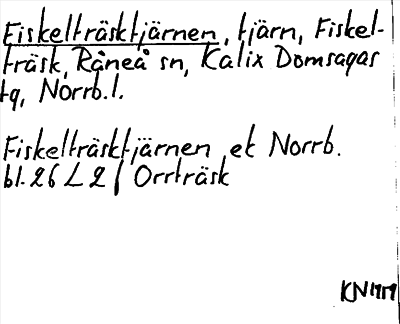 Fiskelträsktjärnen, tjärn, Fiskel-
träsk, Råneå sn, Kalix Domsagas
tg, Norrb.l.
Fiskelträsktjärnen ek Norrb.
bl. 26 L 2 f Orrträsk